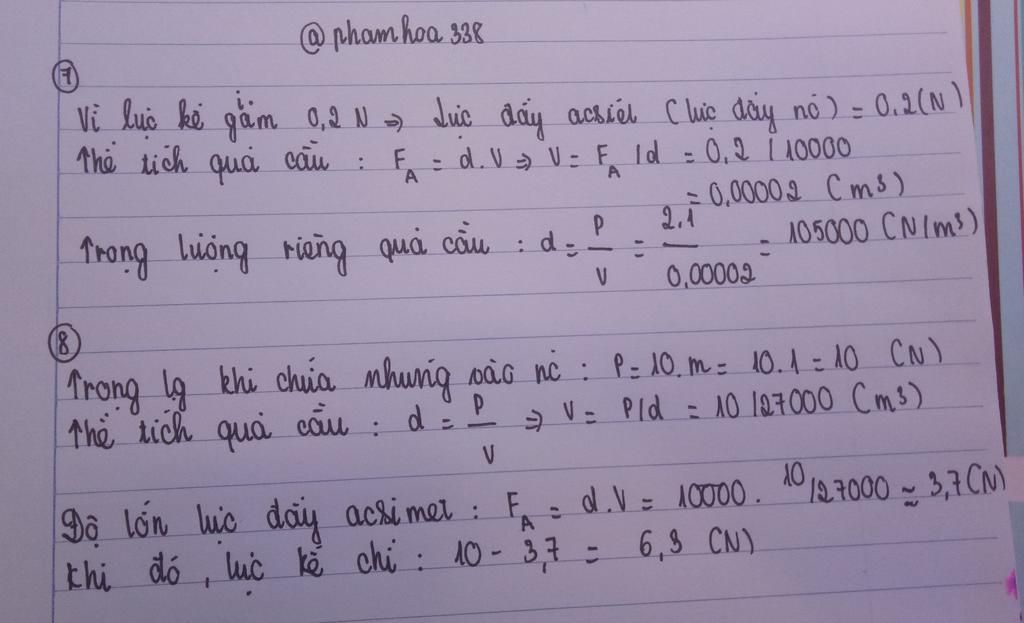 @phamhoa338
7
Vì lực kế gảm 0,2 N => Lực đẩy acsiét (lực đẩy nó) = 0.2(N)
Thể tích quả cầu : F_A = d.V => V = F_A /d = 0,2 / 10000
= 0,00002 (m3)
Trọng lượng riêng quả cầu : d = P/V = 2,1/0,00002 = 105000 (N/m3)
8
Trọng lg khi chưa nhúng vào nc : P = 10.m = 10.1 = 10 (N)
Thể tích quả cầu : d = P/V => V = P/d = 10/27000 (m3)
Độ lớn lực đẩy acsimet : F_A = d.V = 10000. 10/27000 ≈ 3,7(N)
Khi đó, lực kế chỉ : 10 - 3,7 = 6,3 (N)